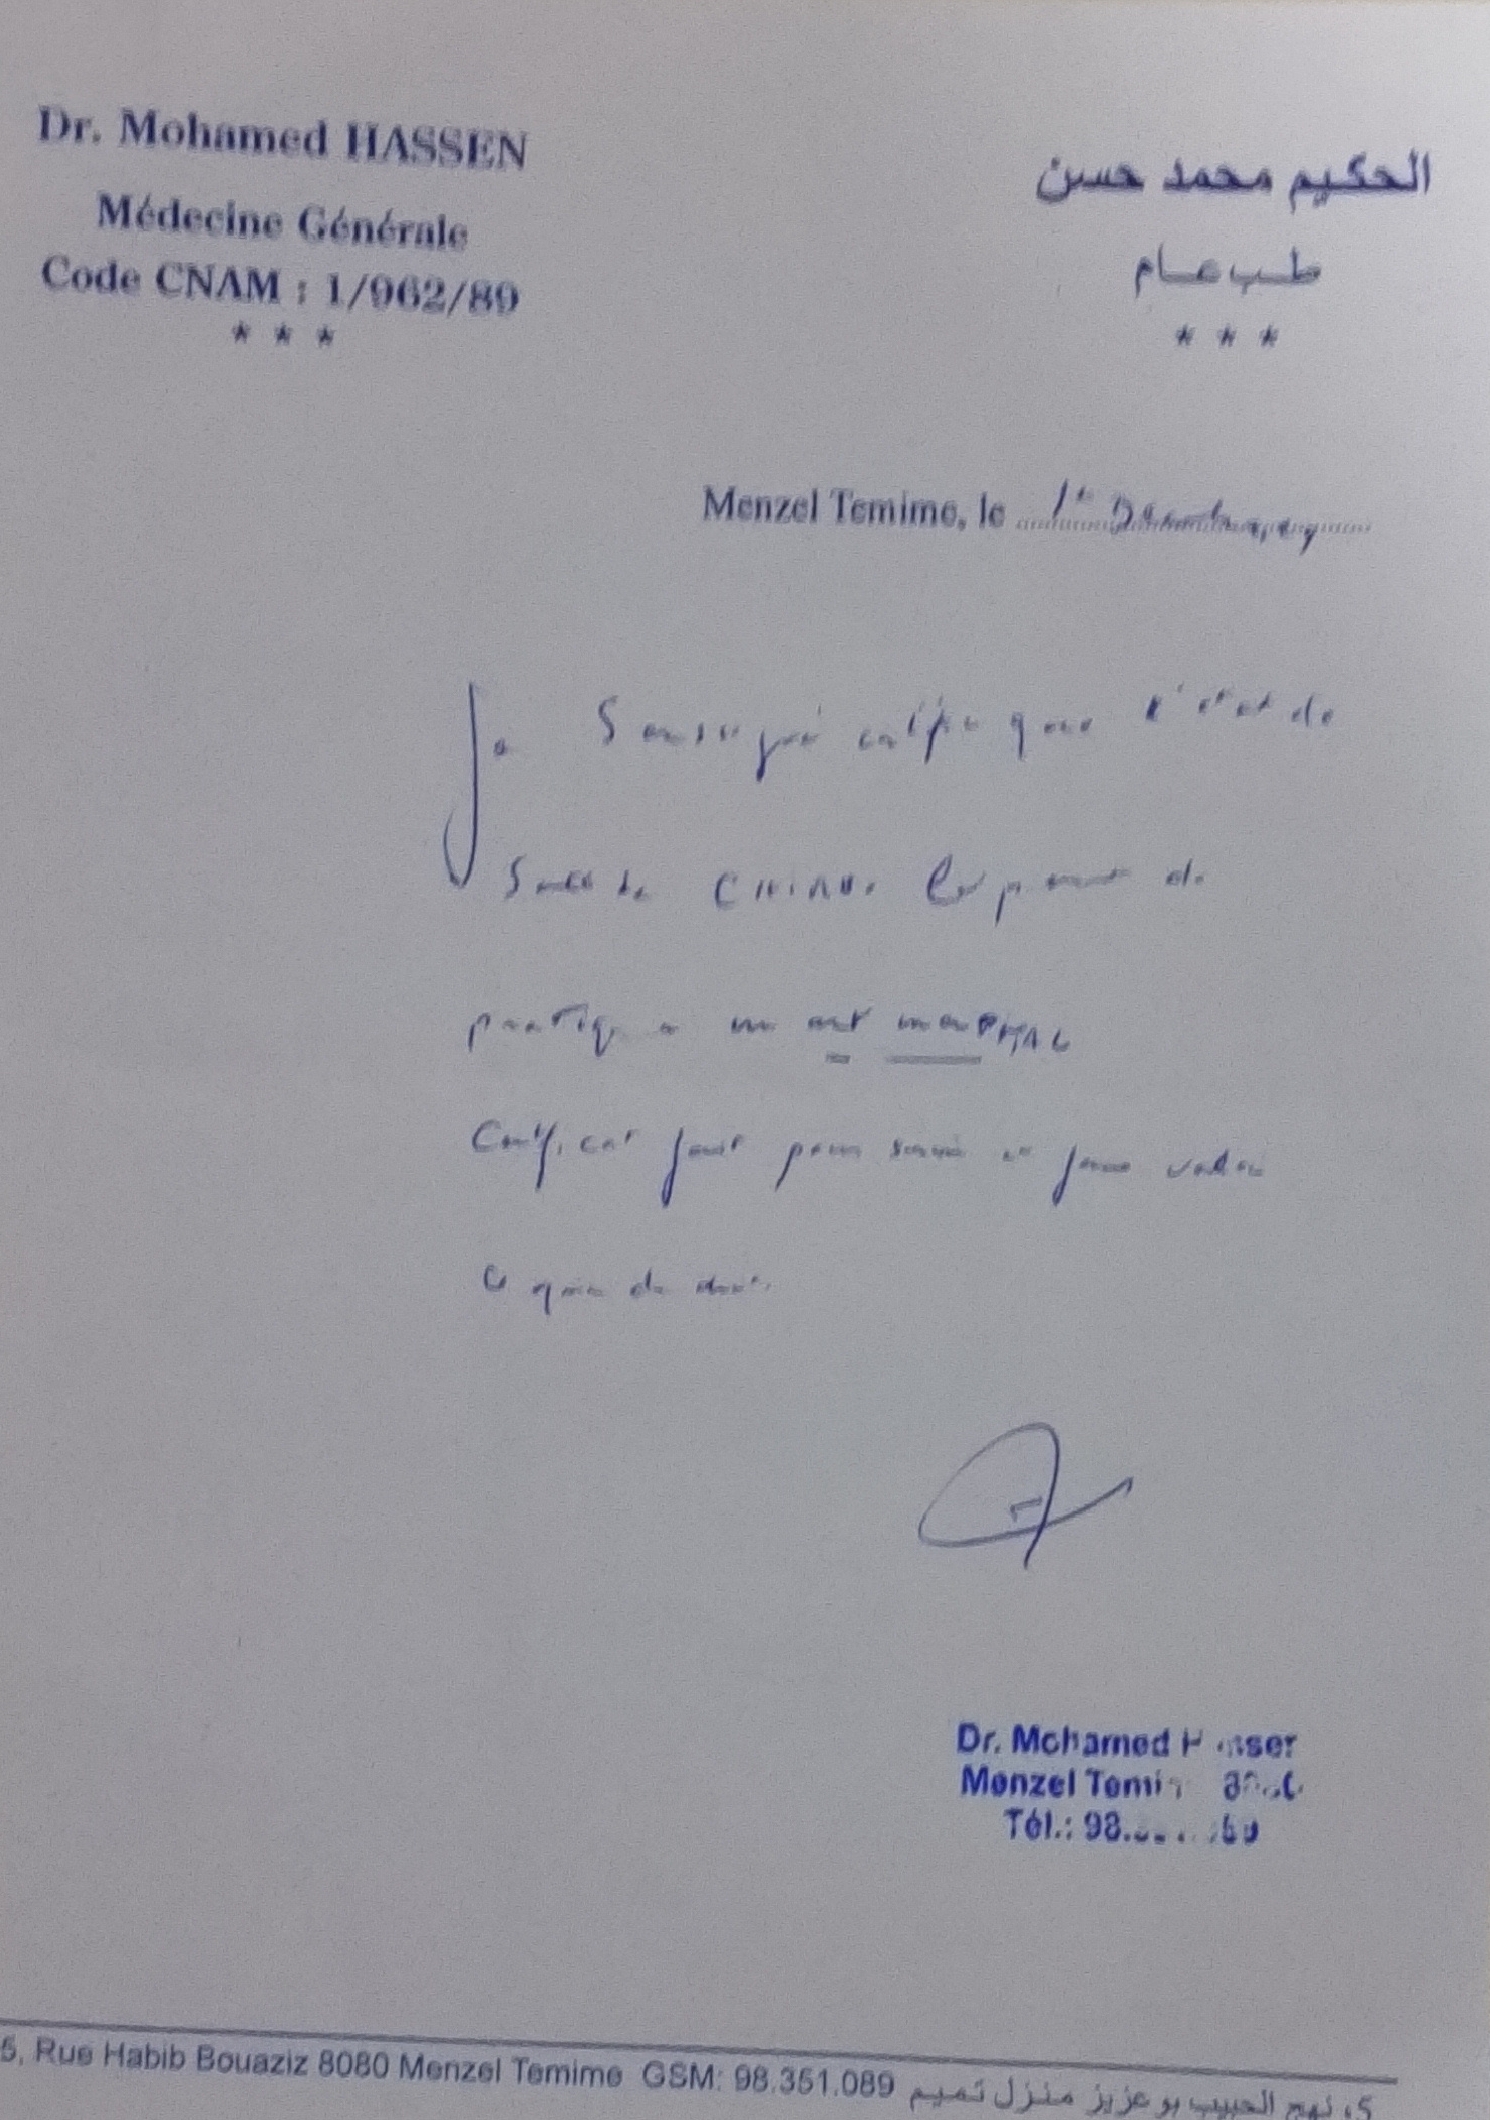 Dr. Mohamed HASSEN
Médecine Générale
Code CNAM : 1/962/89
* * *
الحكيم محمد حسن
طب عام
* * *
Menzel Temime, le
Je Soussigné certifie que l'état de
Santé de permet de
pratiquer un art martial
Certificat fait pour servir et faire valoir
ce que de droit.
Dr. Mohamed
Menzel
Tél.: 98.
5, Rue Habib Bouaziz 8080 Menzel Temime GSM: 98.351.089 5، نهج الحبيب بوعزيز منزل تميم